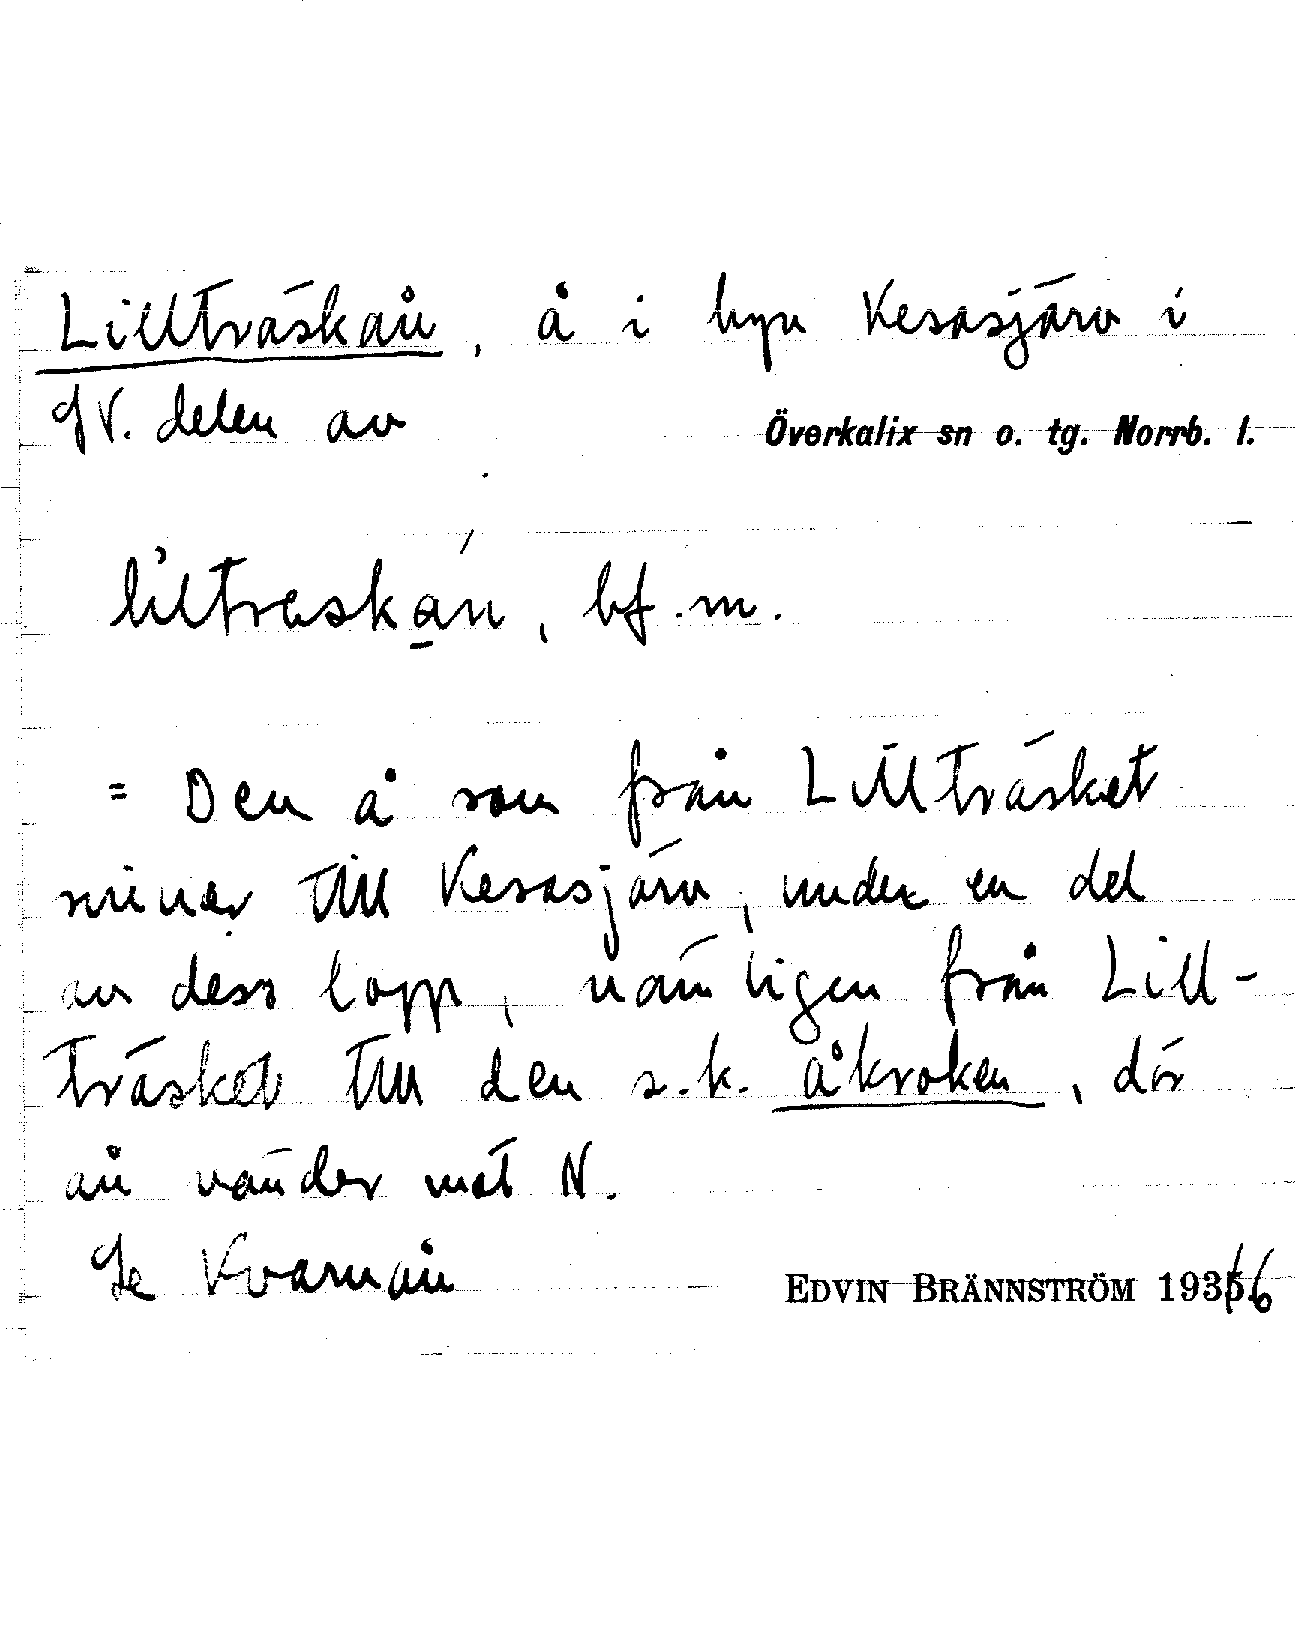 Lillträskån, å i byn Kesasjärv i
SV. delen av Överkalix sn o. tg. Norrb. l.
bf. m.
= Den å som från Lillträsket
rinner till Kesasjärv, under en del
av dess lopp, nämligen från Lill-
träsket till den s.k. åkroken, där
ån vänder mot N.
Se Kvarnån
EDVIN BRÄNNSTRÖM 1936